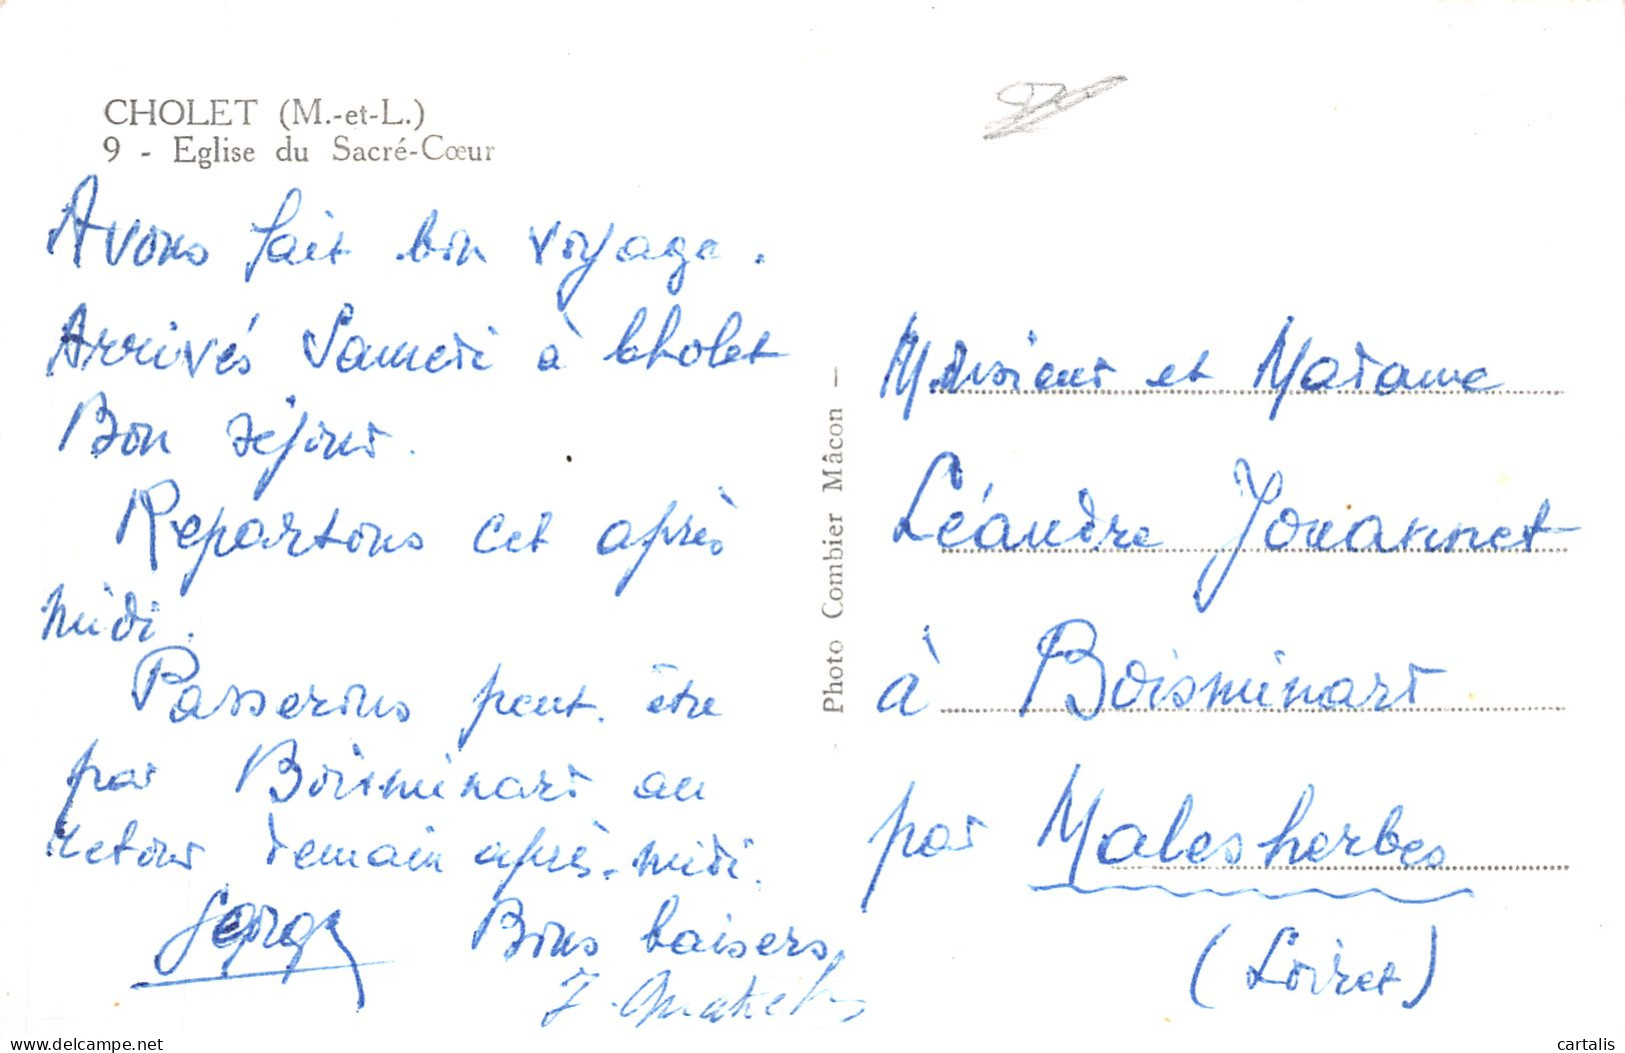 CHOLET (M.-et-L.)
9 - Eglise du Sacré-Cœur
Avons fait bon voyage.
Arrivés Samedi à Cholet
Bon séjour.
Repartons cet après
midi.
Passerons peut-être
par Boisminard au
retour demain après-midi.
Bons baisers
Photo Combier Mâcon
Monsieur et Madame
Léandre Jouannet
à Boisminard
par Malesherbes
(Loiret)
delcampe.net
cartalis